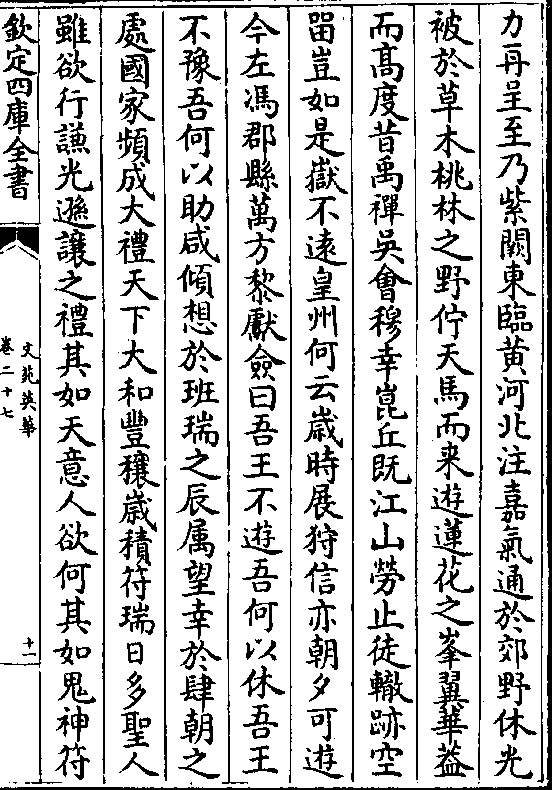 力再呈至乃紫闕東臨黄河北注嘉氣通於郊野休光
被於草木桃林之野佇天馬而来遊蓮花之峯翼華葢
而髙度昔禹禪吳會穆幸崑丘既江山勞止徒轍跡空
留豈如是嶽不逺皇州何云歳時展狩信亦朝夕可遊
今左馮郡縣萬方黎獻僉曰吾王不遊吾何以休吾王
不豫吾何以助咸傾想於班瑞之辰属望幸於肆朝之
處國家頻成大禮天下大和豐穰歳積符瑞日多聖人
雖欲行謙光遜讓之禮其如天意人欲何其如鬼神符
欽定四庫全書
文苑英華
卷二十七
十一